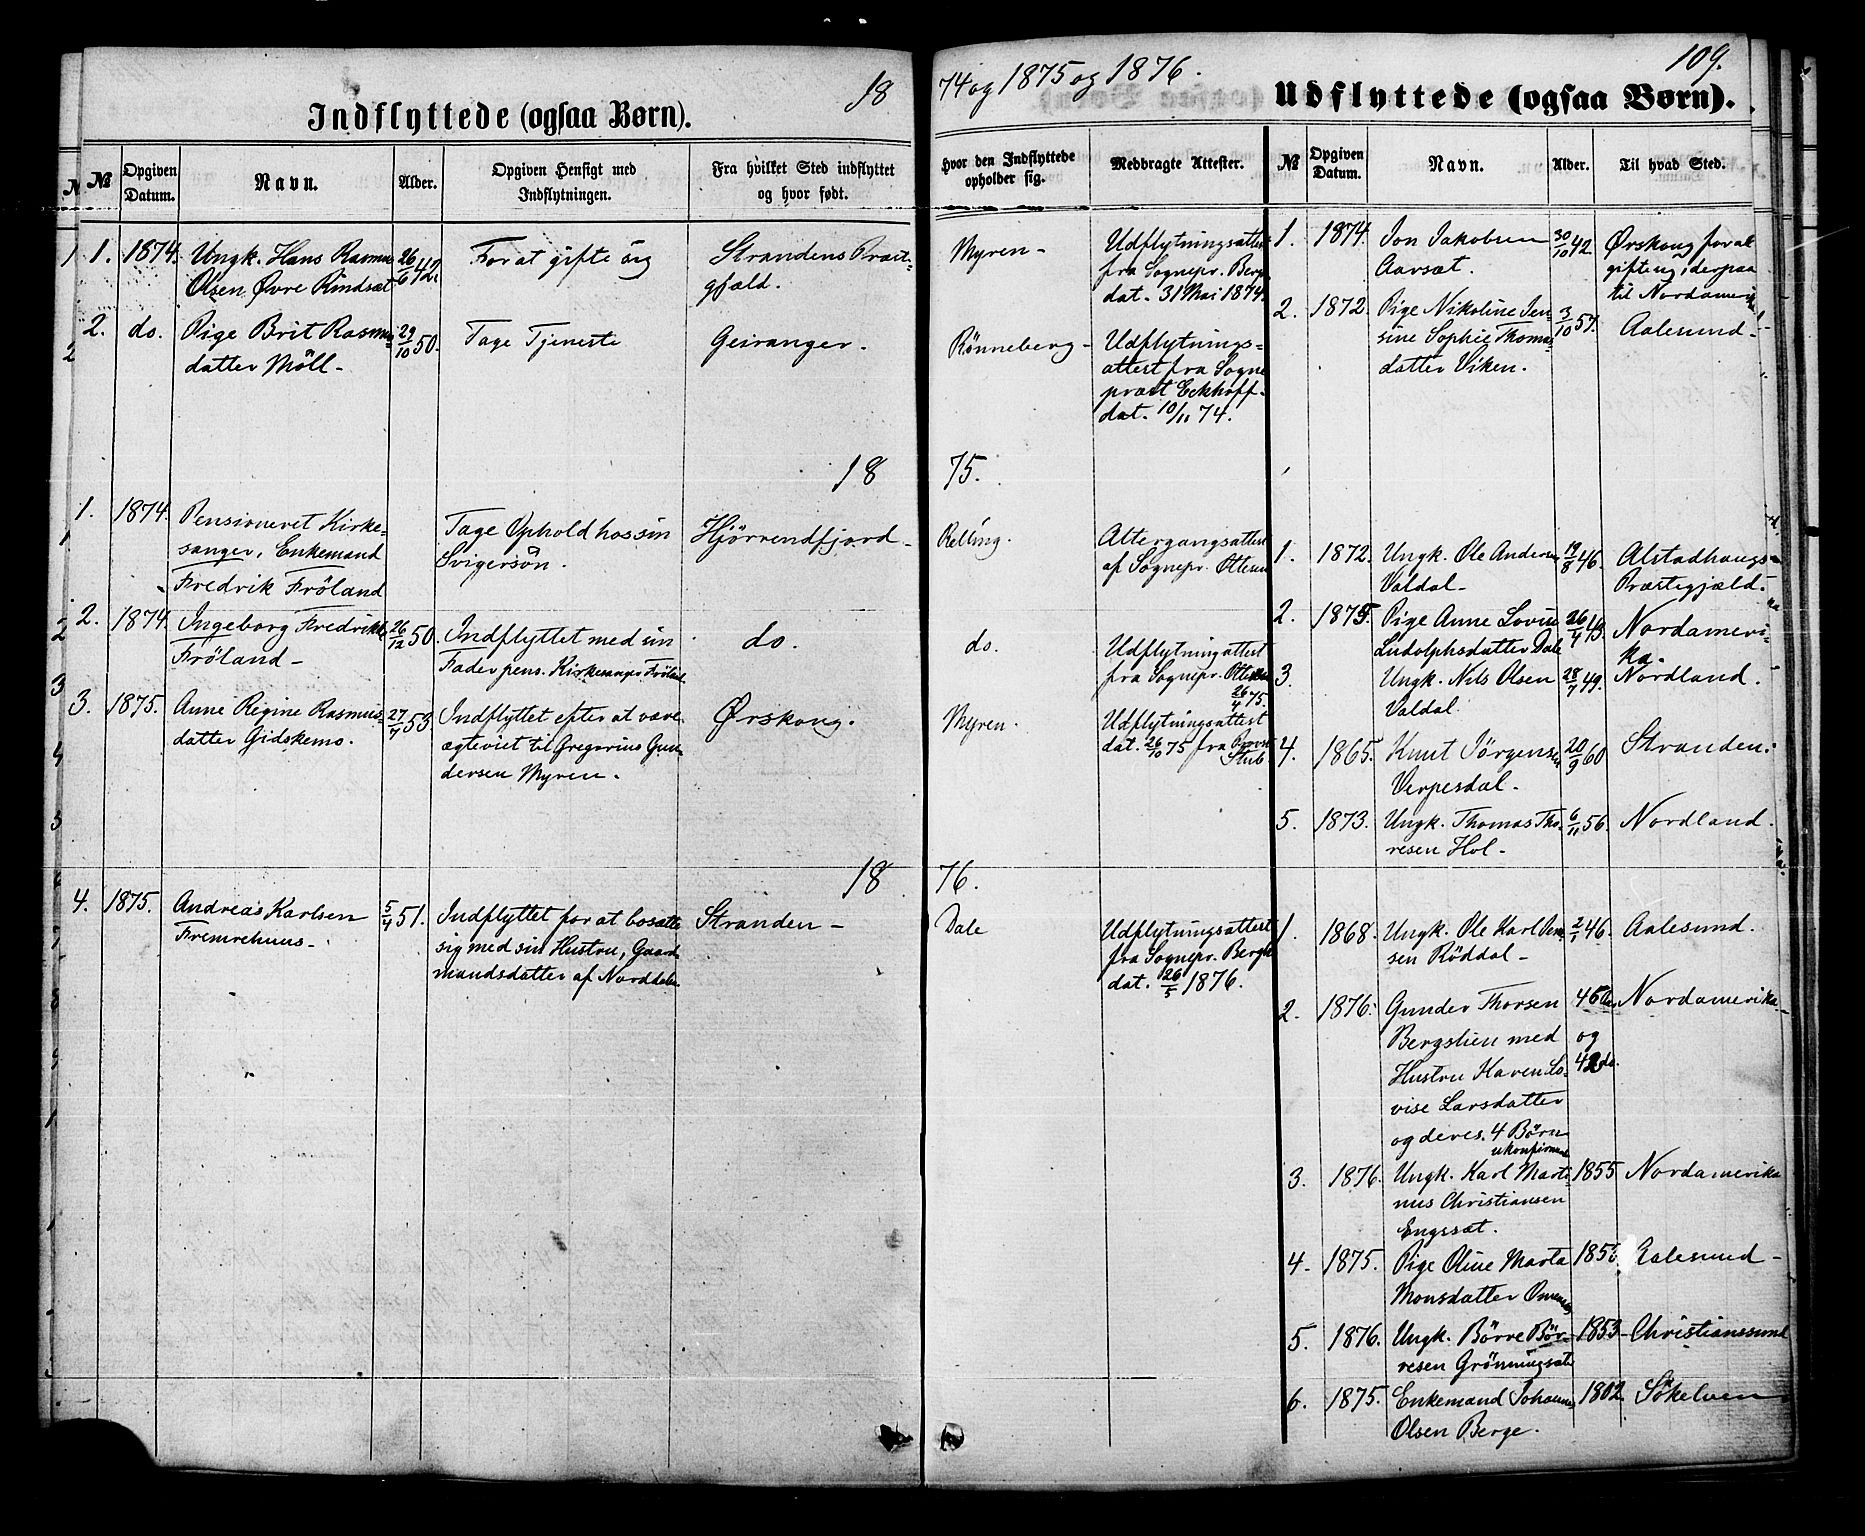 18 74 og 1875 og 1876. 109.
Indflyttede (ogsaa Børn).
№ Opgiven Datum. Navn. Alder. Opgiven Hensigt med Indflytningen. Fra hvilket Sted indflyttet og hvor født. Hvor den Indflyttede opholder sig. Medbragte Attester.
1. 1874. Ungk. Hans Rasmus 26/6 42. For at gifte sig Strandens Præste- Myren- Udflytningsattest
Olsen Øvre Rindsæt gjæld. fra Sognepr. Bergh
dat. 31 Mai 1874.
2. do. Pige Brit Rasmus 29/10 50. Tage Tjeneste Geiranger. Rønneberg- Udflytnings-
datter Möll- attest fra Sogne
præst Eckhoff.
dat. 10/11 74.
18 75.
1. 1874. Pensioneret Kirke- Tage Ophold hos sin Hjörrendfjord- Relling. Altergangsattest
sanger, Enkemand Svigersön. af Sognepr. Ottesen
Fredrik Fröland
2. 1874. Ingeborg Fredrikke 26/12 50. Indflyttet med sin do. do. Udflytningattest
Fröland- Fader pens. Kirkesanger Fröland fra Sognepr. Ottesen
26/4 75.
3. 1875. Anne Regine Rasmus- 27/7 53. Indflyttet efter at være Ørskoug. Myren. Udflytningsattest
datter Gidskemo. ægteviet til Gregorius Gun- dat. 26/10 75 fra Provst
dersen Myren. Stub.
18 76.
4. 1875. Andreas Karlsen 5/4 51. Indflyttet for at bosætte Stranden- Dale Udflytningsattest
Fremrehuus- sig med sin Hustru, Gaard- fra Sognepr. Bergh
mandsdatter af Norddalen dat. 26/5 1876.
Udflyttede (ogsaa Børn).
№ Opgiven Datum. Navn. Alder. Til hvad Sted.
1. 1874. Jon Jakobsen 30/10 42. Ørskoug for at
Aarsæt. gifte sig derpaa
til Nordamerik
2. 1872. Pige Nikoline Jen- 3/10 57. Aalesund-
sine Sophie Thomas-
datter Viken.
1. 1872. Ungk. Ole Andersen 19/8 46. Alstadhaugs
Valdal- Præstegjæld-
2. 1875. Pige Anne Lovise 26/4 49. Nordameri-
Ludolphsdatter Dale ka.
3. Ungk. Nils Olsen 28/7 49. Nordland.
Valdal.
4. 1865. Knut Jörgensen 20/9 60 Stranden.
Verpesdal.
5. 1873. Ungk. Thomas Tho- 6/11 56. Nordland.
resen Hol-
1. 1868. Ungk. Ole Karl Jen- 2/1 46. Aalesund.
sen Röddal-
2. 1876. Gunder Thorsen 45 Nordamerika
Bergslien med og
Hustru Karen Lo- 42 do.
vise Larsdatter
og deres 4 Børn
ukonfirmerede
3. 1876. Ungk. Karl Marti- 1855 Nordamerika
nus Christiansen
Engsæt.
4. 1875. Pige Oline Marta Aalesund-
Monsdatter
5. 1876. Ungk. Börre Bör- 1853- Christianssund
resen Grönningsæt
6. 1875. Enkemand Johannes 1802 Sökelven
Olsen Berge.